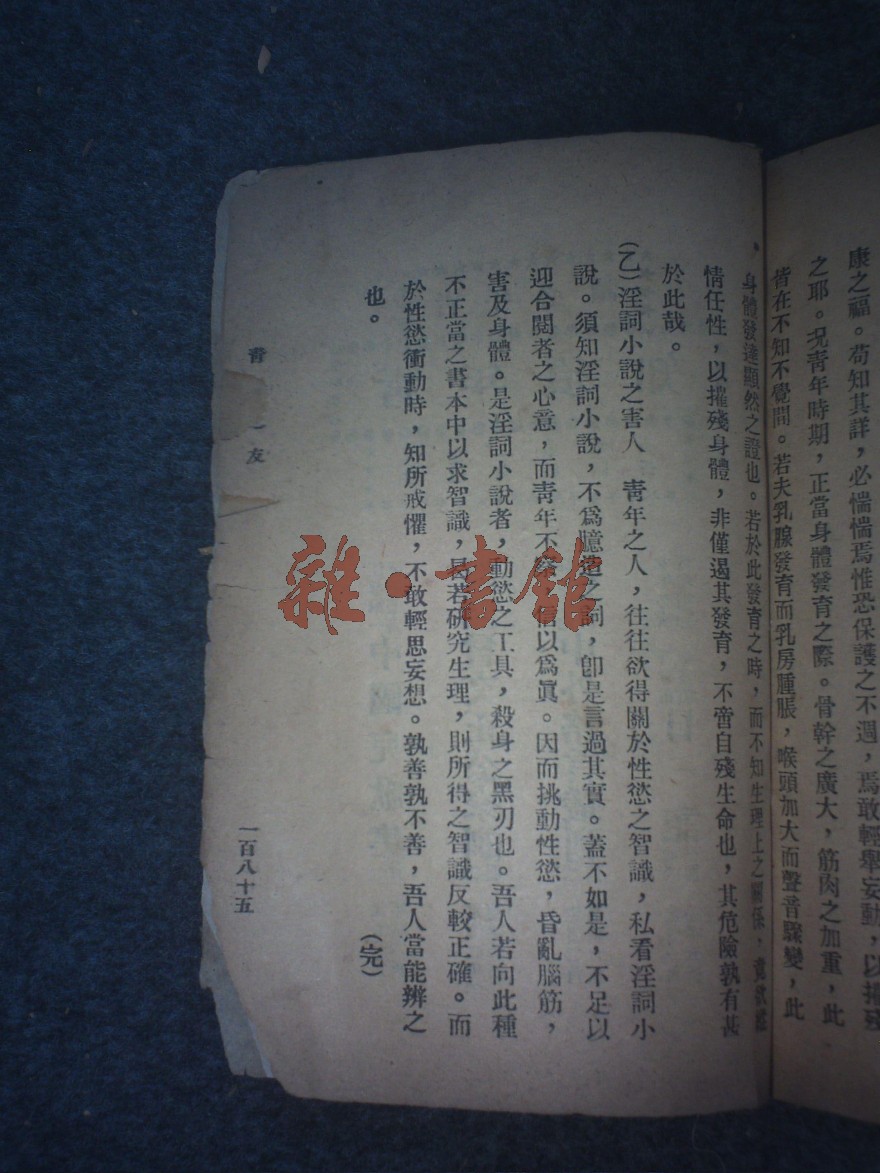 康之福。苟知其詳，必惴惴焉惟恐保護之不週，焉敢輕舉妄動，以摧殘
之耶。況青年時期，正當身體發育之際。骨幹之廣大，筋肉之加重，此
皆在不知不覺間。若夫乳腺發育而乳房腫脹，喉頭加大而聲音驟變，此
身體發達顯然之證也。若於此發育之時，而不知生理上之關係，
情任性，以摧殘身體，非僅遏其發育，不啻自殘生命也，其危險孰有甚
於此哉。
（乙）淫詞小說之害人　青年之人，往往欲得關於性慾之智識，私看淫詞小
說。須知淫詞小說，不爲臆造之詞，卽是言過其實。蓋不如是，不足以
迎合閱者之心意，而靑年不察，信以爲眞。因而挑動性慾，昏亂腦筋，
害及身體。是淫詞小說者，動慾之工具，殺身之黑刃也。吾人若向此種
不正當之書本中以求智識，曷若研究生理，則所得之智識反較正確。而
於性慾衝動時，知所戒懼，不敢輕思妄想。孰善孰不善，吾人當能辨之
也。
（完）
靑 友
一百八十五
雜·書館